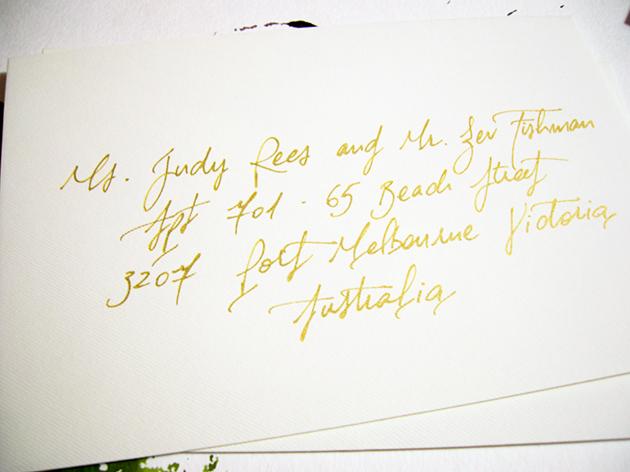 Ms. Judy Rees and Mr. Zev Fishman
Apt 701 - 65 Beach Street
3207 Port Melbourne Victoria
Australia